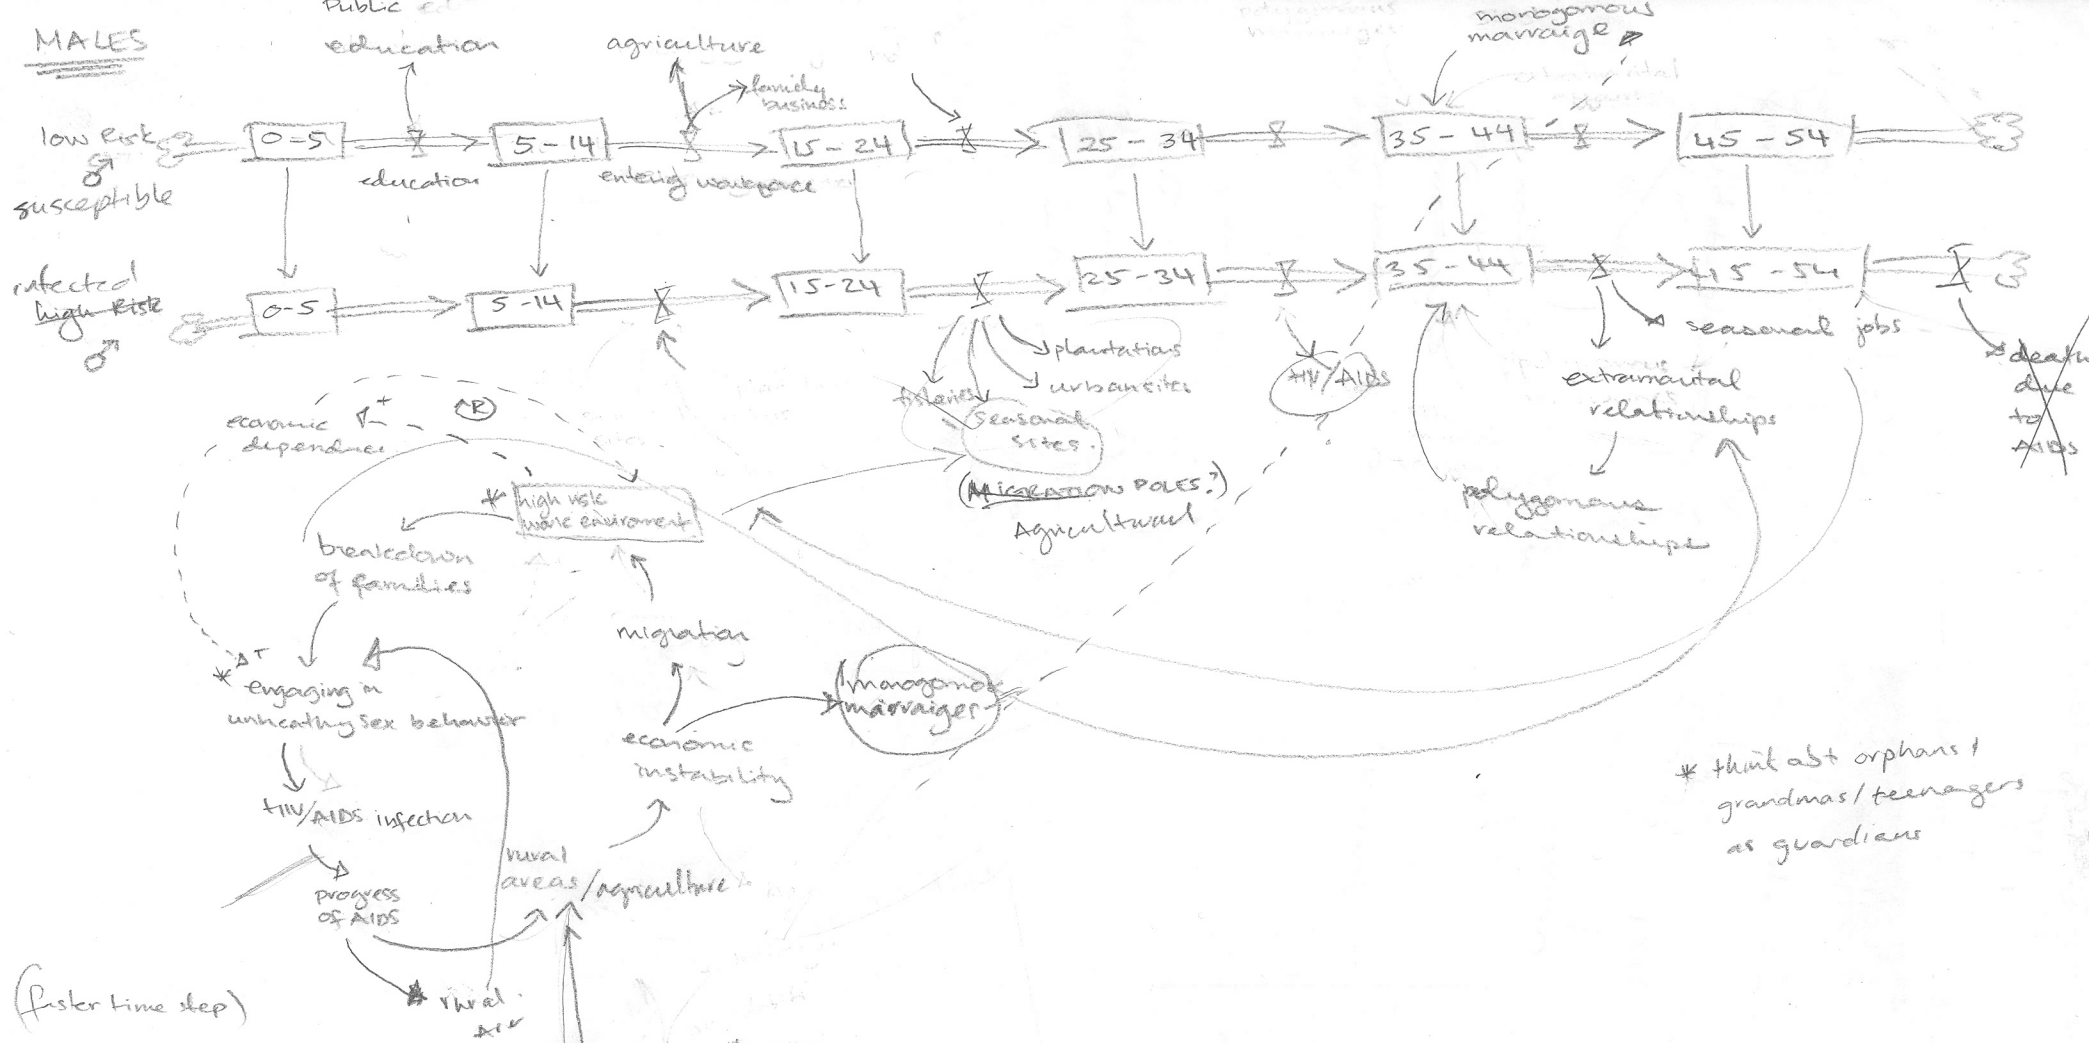 Public
MALES
education
agriculture
family
business
monogomous
marraige
low Risk
♂
susceptible
0-5
5-14
15-24
25-34
35-44
45-54
education
entering workforce
infected
high Risk
♂
0-5
5-14
15-24
25-34
35-44
45-54
plantations
urban sites
fisheries
seasonal
sites.
(MIGRATION POLES?)
Agricultural
HIV/AIDS
seasonal jobs
extramarital
relationships
polygomous
relationships
death
due
to
AIDS
economic
dependence
+
R
* high risk
work enviroment
breakdown
of families
migration
* +
engaging in
unheathy sex behavior
monogomous
marraiges
economic
instability
HIV/AIDS infection
progress
of AIDS
rural
areas/agriculture
rural
* think abt orphans/
grandmas/teenagers
as guardians
(faster time step)